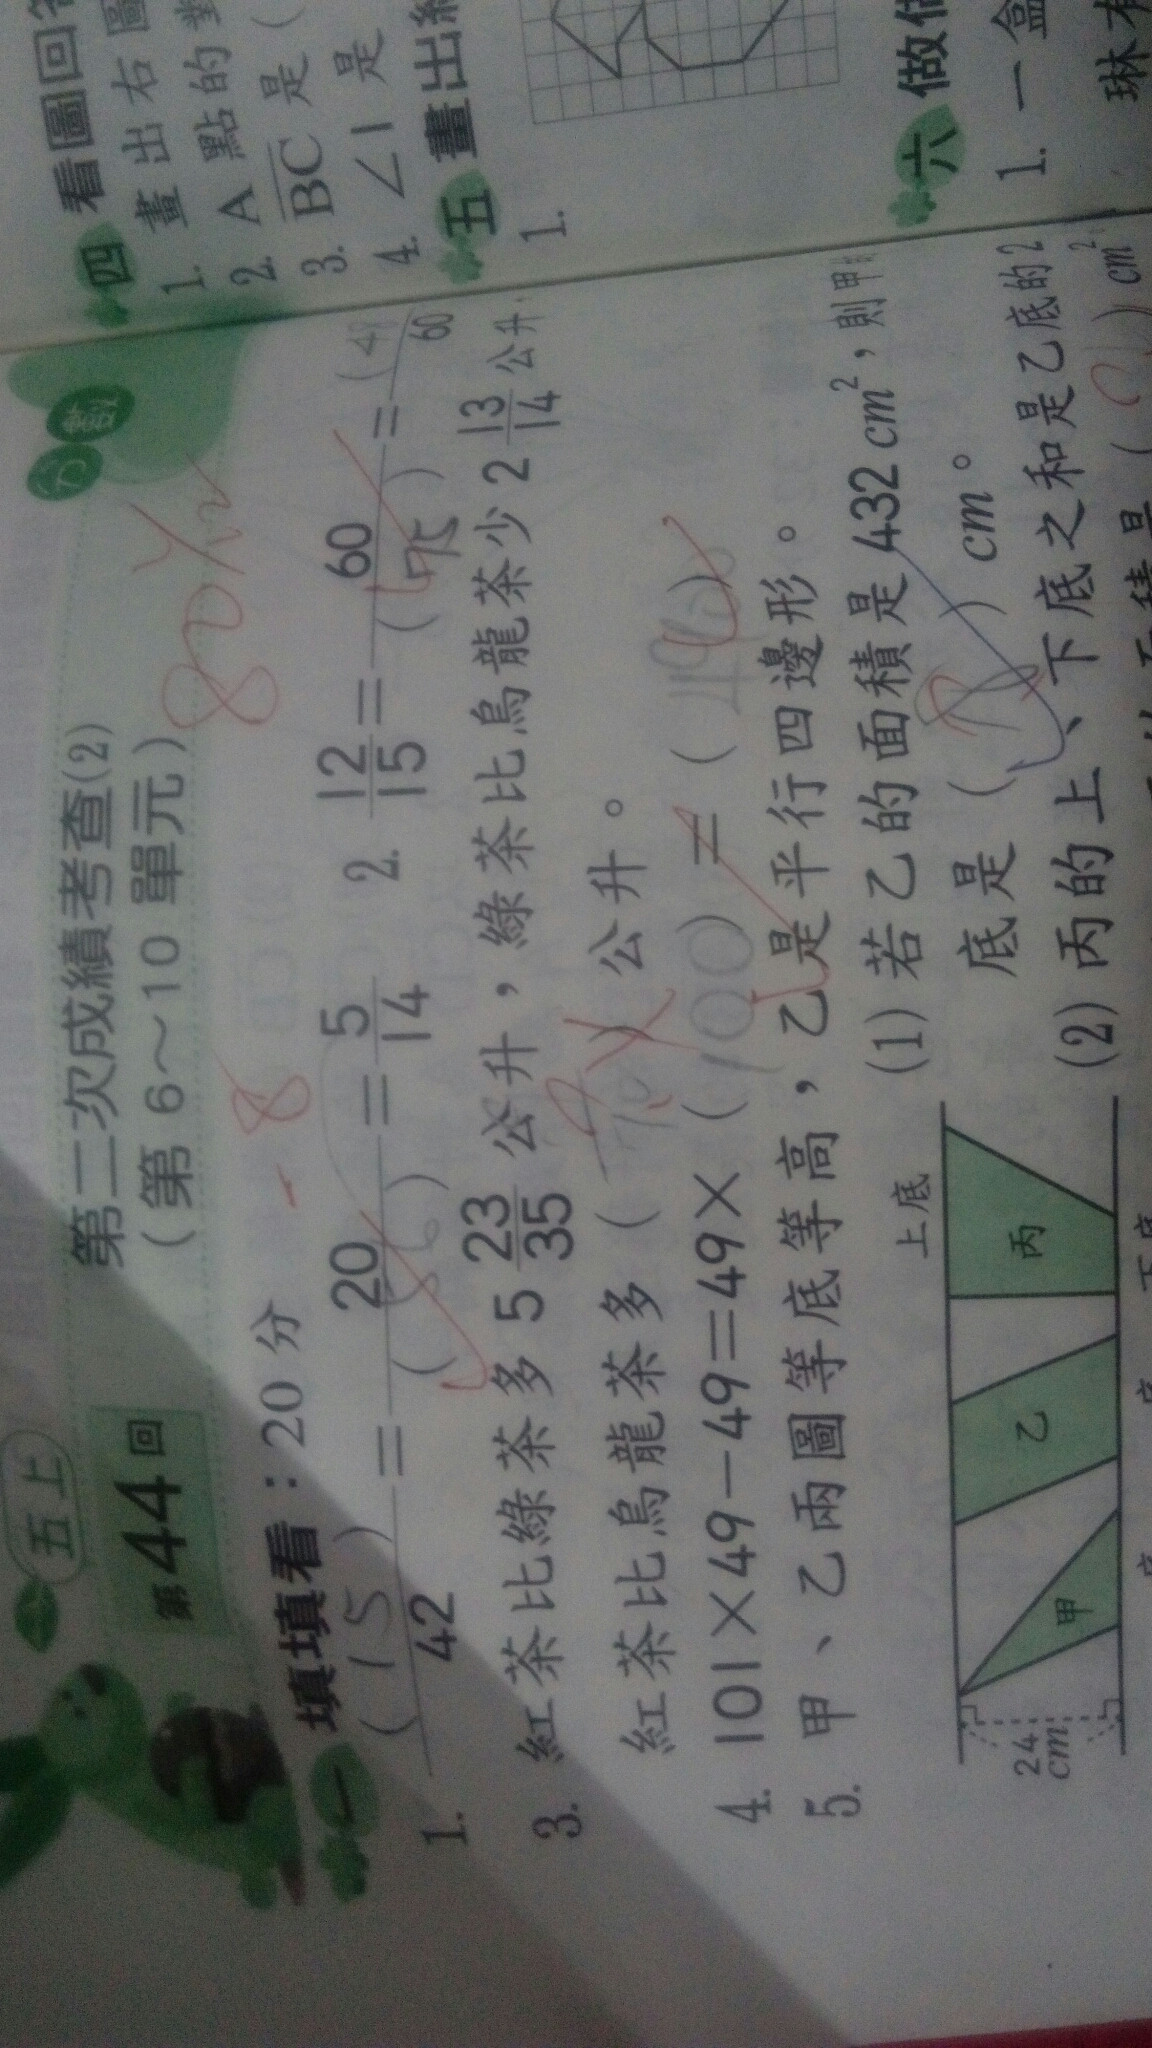 五上
第44回
第二次成績考查(2)
(第6～10單元)
一 填填看：20分
-8
80
1. (15)/42 = 20/(56) = 5/14 2. 12/15 = 60/(75) = (4 /60
3. 紅茶比綠茶多 5 23/35 公升，綠茶比烏龍茶少 2 13/14 公升
紅茶比烏龍茶多 ( ) 公升。
4. 101×49-49=49×(100)=(4900)
5. 甲、乙兩圖等底等高，乙是平行四邊形。
(1) 若乙的面積是432 cm²，則甲
底是 ( ) cm。
(2) 丙的上、下底之和是乙底的2
( ) cm²
上底
甲
乙
丙
24 cm
四 看圖回答
1. 畫出右圖
2. A點的對
3. BC是(
4. ∠1是
五 畫出
1.
六 做做
1. 一盒
琳